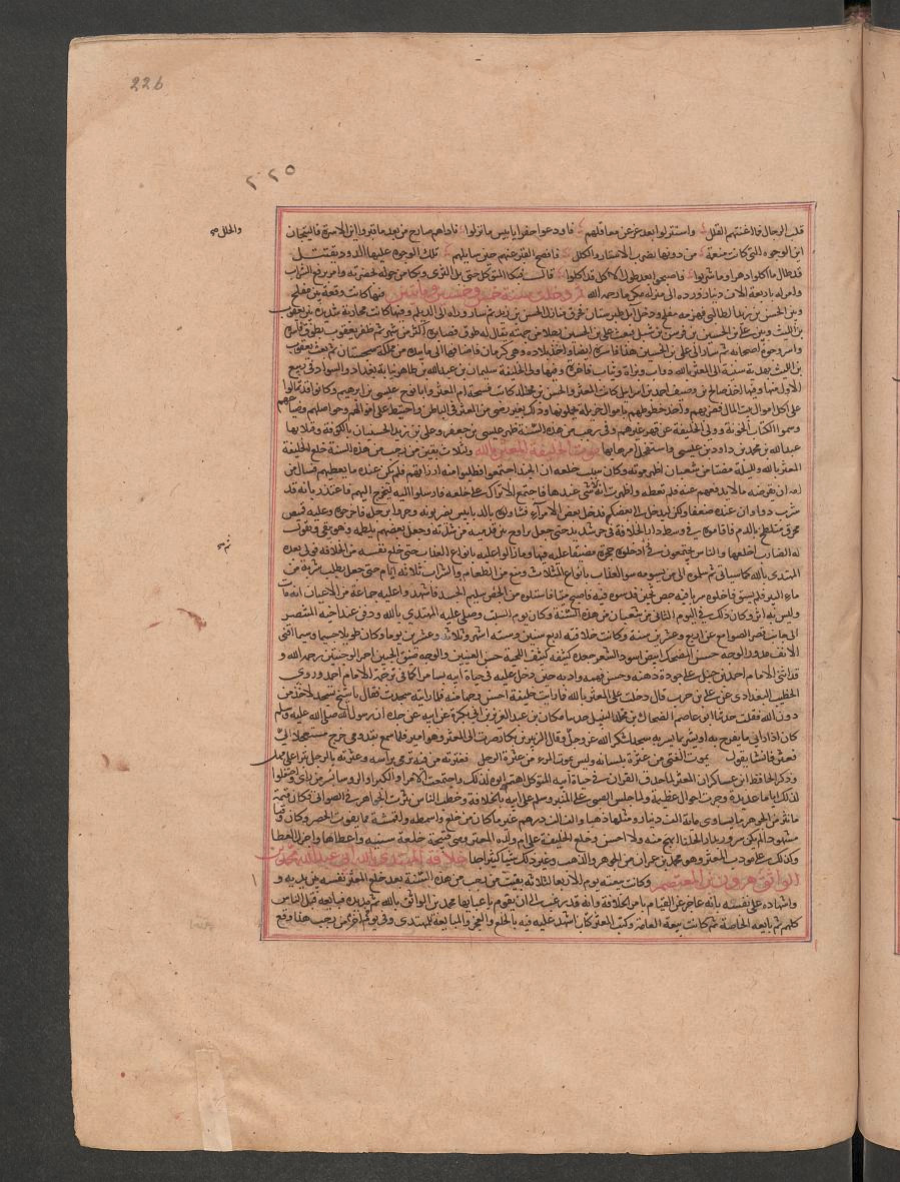 226
٢٢٥
قلب الرجال فما اغنتهم القلل واستنزلوا بعد عز عن معاقلهم فاودعوا حفرا يا بئس ما نزلوا ناداهم صارخ من بعد ما قبروا اين الاسرة والتيجان
والحلل صح
اين الوجوه التي كانت منعمة من دونها تضرب الاستار والكلل فافصح القبر عنهم حين سايلهم تلك الوجوه عليها الدود يقتتل
قد طال ما اكلوا دهرا وما شربوا فاصبحوا بعد طول الاكل قد اكلوا قال فبكا المتوكل حتى بل الثرى وبكا من حوله لحضرته وامر برفع الشراب
وامر له باربعة الاف دينار ورده الى منزله مكرما رحمه الله ثم دخلت سنة خمس وخمسين ومايتين فيها كانت وقعة بين مفلح
وبين الحسن بن زيد الطالبي فهزمه مفلح ودخل آمل طبرستان وحرق منازل الحسن بن زيد ثم سار وراه الى الديلم وفيها كانت محاربة شديدة بين يعقوب
بن الليث وبين علي بن الحسين بن قريش بن شبل فبعث علي بن الحسين رجلا من جهته يقال له طوق فصابره اكثر من شهر ثم ظفر يعقوب بطوق فاسره
واسر وجوه اصحابه ثم سار الى علي بن الحسين هذا فاسره ايضا واخذ بلاده وهي كرمان فاضافها الى ما بيده من مملكة سجستان ثم بعث يعقوب
بن الليث بهدية سنية الى المعتز بالله دواب وبزاة وثياب فاخرة وفيها ولى الخليفة سليمان بن عبد الله بن طاهر نيابة بغداد والسواد في ربيع
الاول منها وفيها اخذ صالح بن وصيف احمد بن اسرايل كاتب المعتز والحسن بن مخلد كاتب قبيحة ام المعتز وابا نوح عيسى بن ابرهيم وكانوا قد تمالوا
على اكل اموال بيت المال فضربهم واخذ خطوطهم باموال جزيلة يحملونها وذلك بغير رضى من المعتز في الباطن واحتيط على اموالهم وحواصلهم وضياعهم
وسموا الكتاب الخونة وولى الخليفة عن قهر غيرهم وفي رجب من هذه السنة ظهر عيسى بن جعفر وعلي بن زيد الحسنيان بالكوفة وقتلا بها
عبد الله بن محمد بن داود بن عيسى واستفحل امرهما بها موت الخليفة المعتز بالله ولثلاث بقين من رجب من هذه السنة خلع الخليفة
المعتز بالله ولليلة مضتا من شعبان اظهر موته وكان سبب خلعه ان الجند اجتمعوا فطلبوا منه ارزاقهم فلم يكن عنده ما يعطيهم فسال من
امه ان يقرضه مالا يدفعهم عنه فلم تعطه واظهرت انه لا شي عندها فاجتمع الاتراك على خلعه فارسلوا اليه ليخرج اليهم فاعتذر بانه قد
شرب دوا وان عنده ضعفا ولكن ليدخل الي بعضكم فدخل بعض الامراء فتناولوه بالدبابيس يضربونه وجروا برجله فاخرجوه وعليه قميص
مخرق متلطخ بالدم فاقاموه في وسط دار الخلافة في حر شديد حتى جعل يراوح بين قدميه من شدته وجعل بعضهم يلطمه وهو يتقي ويقول
له الضارب اخلعها والناس مجتمعون ثم ادخلوه حجرة مضيقا عليه فيها وما زالوا عليه بانواع العذاب حتى خلع نفسه من الخلافة وولى بعده
المهتدي بالله كما سياتي ثم سلموه الى من يسومه سوء العذاب بانواع المثلات ومنع من الطعام والشراب ثلاثة ايام حتى جعل يطلب شربة من
ماء البير فلم يسق ثم ادخلوه سربا فيه جص جير فدسوه فيه فاصبح ميتا فاستلوه من الجص سليم الجسد فاشهدوا عليه جماعة من الاعيان انه مات
وليس به اثر وكان ذلك في اليوم الثاني من شعبان من هذه السنة وكان يوم السبت وصلى عليه المهتدي بالله ودفن عند اخيه المنتصر
الى جانب قصر الصوامع عن اربع وعشرين سنة وكانت خلافته اربع سنين وستة اشهر وثلاثة وعشرين يوما وكان طويلا جسيما وسيما اقنى
الانف مدور الوجه حسن الضحك ابيض اسود الشعر مجعده كثيفه كثيف اللحية حسن العينين والوجه ضيق الجبين احمر الوجنتين رحمه الله و
قد اثنى الامام احمد بن حنبل على جودة ذهنه وحسن فهمه وادبه حين دخل عليه في حياة ابيه بسامرا كما في ترجمة الامام احمد وروى
الخطيب البغدادي عن علي بن حرب قال دخلت على المعتز بالله فما رايت خليفة احسن وجها منه فلما رايته سجدت فقال يا شيخ تسجد لاحد من
دون الله فقلت حدثنا ابو عاصم الضحاك بن مخلد النبيل حدثنا بكار بن عبد العزيز بن ابي بكرة عن ابيه عن جده ان رسول الله صلى الله عليه وسلم
كان اذا راى ما يفرح به او يبشر بما يسره سجد شكرا لله عز وجل وقال الزبير بن بكار صرت الى المعتز وهو امير فلما سمع بقدومي خرج مستعجلا الي
فعثر فانشا يقول يموت الفتى من عثرة بلسانه وليس يموت المرء من عثرة الرجل فعثرته من فيه ترمي براسه وعثرته بالرجل تبرا على مهل
وذكر الحافظ ابن عساكر ان المعتز لما حذق القران في حياة ابيه المتوكل اهتم ابوه لذلك واجتمعت الامراء والكبراء والروسا بسر من راى واحتفلوا
لذلك اياما عديدة وجرت احوال عظيمة ولما جلس الصبي على المنبر وسلم على ابيه بالخلافة وخطب الناس نثرت الجواهر في الصواني وكان قيمة
ما نثر من الجوهر ما يساوي مائة الف دينار ومثلها ذهبا والف الف درهم غير ما كان من خلع واسمطة واقمشة مما يفوت الحصر وكان وقتا
مشهودا لم يكن سرور بدار الخلافة ابهج منه ولا احسن وخلع الخليفة على ام ولده المعتز يعني قبيحة خلعة سنية واعطاها واجزل لها العطا
وكذلك على مودب المعتز وهو محمد بن عمران من الجوهر والذهب وغير ذلك شيا كثيرا جدا خلافة المهتدي بالله ابي عبد الله محمد بن
الواثق هرون بن المعتصم وكانت بيعته يوم الاربعا لليلة بقيت من رجب من هذه السنة بعد خلع المعتز نفسه بين يديه و
اشهاده على نفسه بانه عاجز عن القيام بامر الخلافة وانه قد رغب الى ان يقوم باعبائها محمد بن الواثق بالله ثم مد يده فبايعه قبل الناس
كلهم ثم بايعه الخاصة ثم كانت بيعة العامة وكتب المعتز كتابا اشهد عليه فيه بالخلع والعجز والمبايعة للمهتدي وفي يوم اخر من رجب هذا وقع